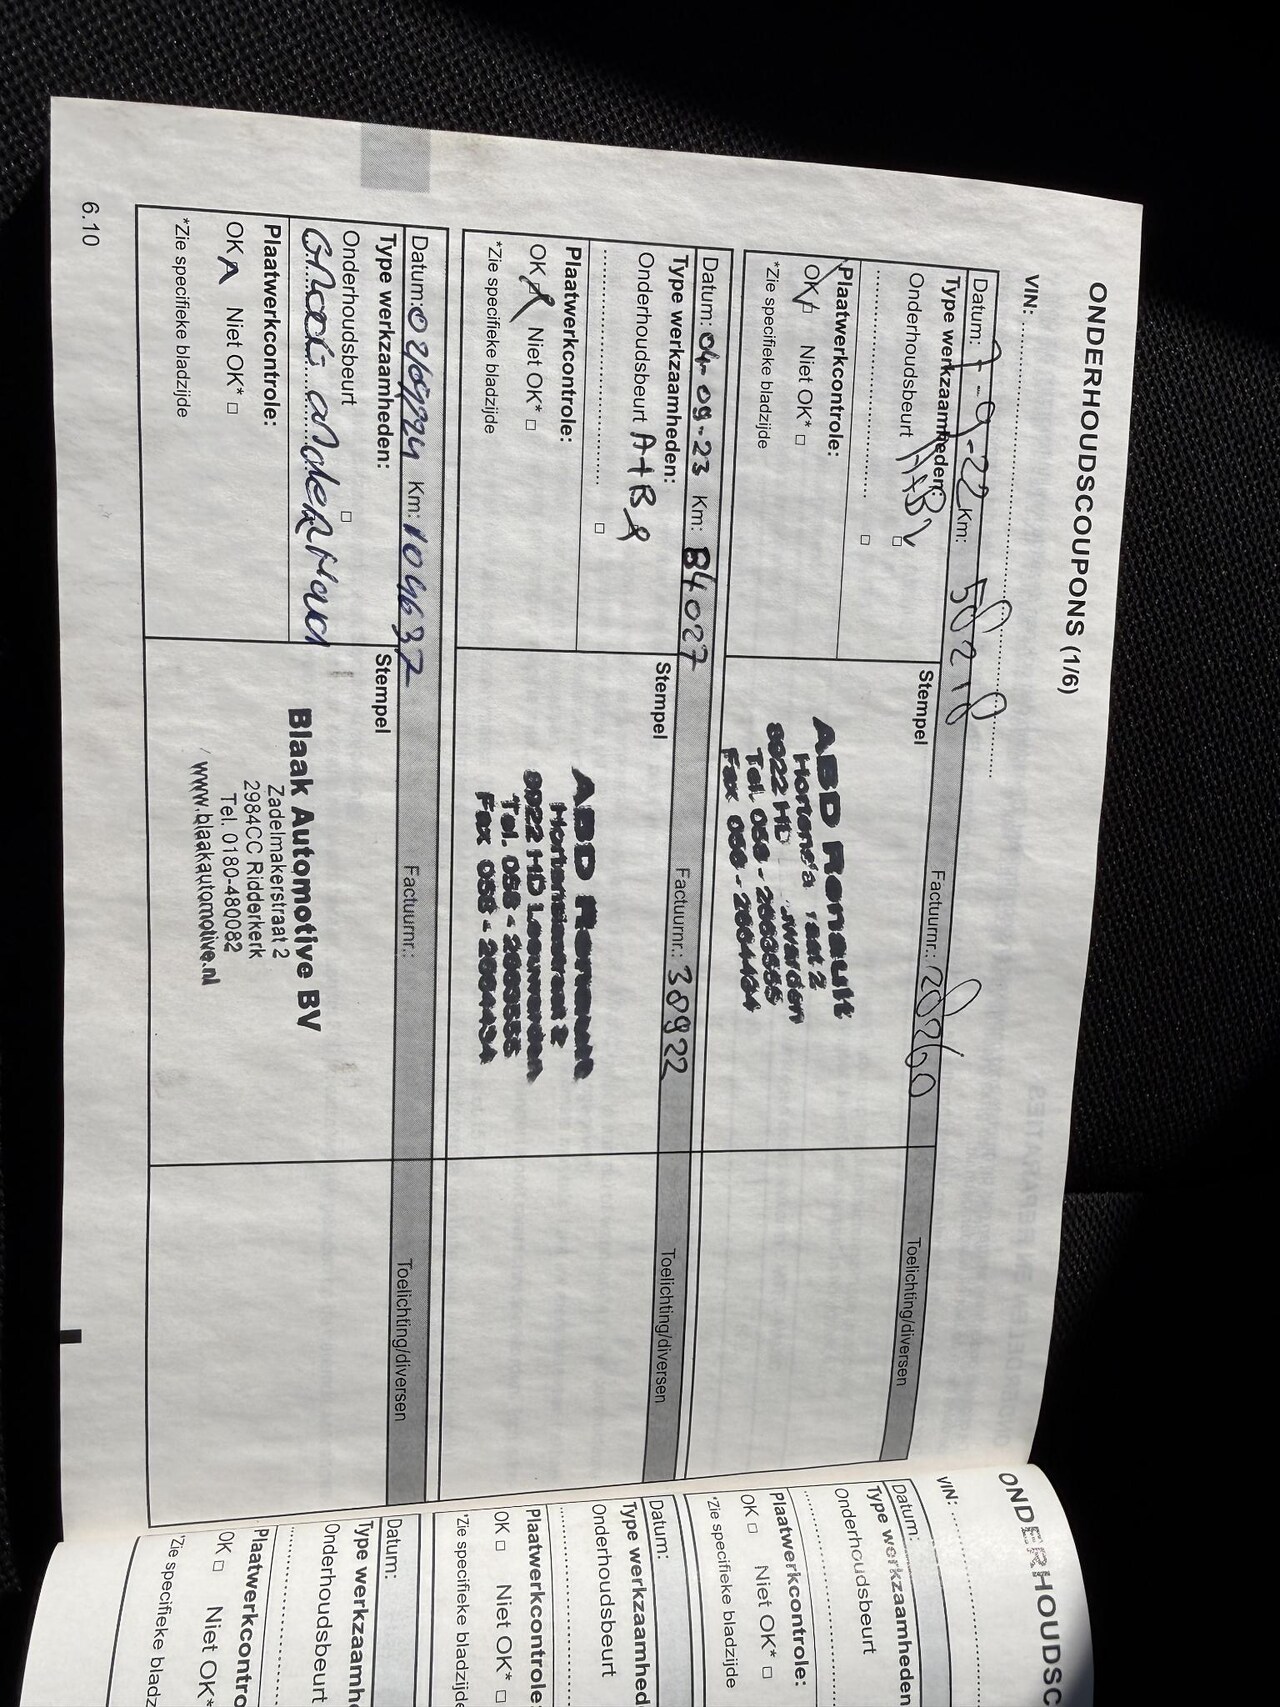 ONDERHOUDSCOUPONS (1/6)
VIN:
Datum: 7-9-22 Km: 58218 Factuurnr.: 28260 Toelichting/diversen
Type werkzaamheden: Stempel
Onderhoudsbeurt A+B2
Plaatwerkcontrole:
OK Niet OK*
*Zie specifieke bladzijde
ABD Renault
8922 HD
Datum: 04-09-23 Km: 84027 Factuurnr.: 38922 Toelichting/diversen
Type werkzaamheden: Stempel
Onderhoudsbeurt A+B
Plaatwerkcontrole:
OK Niet OK*
*Zie specifieke bladzijde
ABD Renault
8922 HD Leeuwarden
Datum: Km: 109637 Factuurnr.: Toelichting/diversen
Type werkzaamheden: Stempel
Onderhoudsbeurt
Groot onderhoud
Plaatwerkcontrole:
OK Niet OK*
*Zie specifieke bladzijde
Blaak Automotive BV
Zadelmakerstraat 2
2984CC Ridderkerk
Tel. 0180-480082
www.blaakautomotive.nl
6.10
ONDERHOUDSC
VIN:
Datum:
Type werkzaamheden
Onderhoudsbeurt
Plaatwerkcontrole:
OK Niet OK*
*Zie specifieke bladzijde
Datum:
Type werkzaamhed
Onderhoudsbeurt
Plaatwerkcontrole:
OK Niet OK*
*Zie specifieke bladzijde
Datum:
Type werkzaamh
Onderhoudsbeurt
Plaatwerkcontro
OK Niet OK*
*Zie specifieke bladz